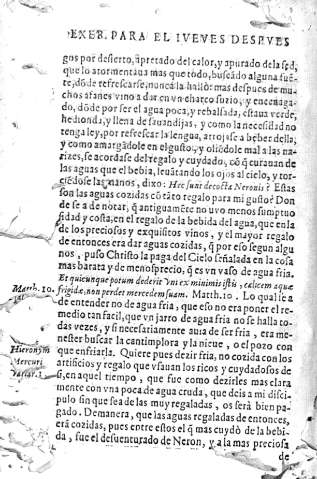 EXER. PARA EL IVEVES DESPVES
gos por desierto, apretado del calor, y apurado dela sed,
que lo atormentaua mas que todo, buscãdo alguna fuẽ-
te, dõde refrescarse, nunca la hallò: mas despues de mu-
chos afanes vino a dar en vn charco suzio, y encenaga-
do, dõde por ser el agua poca, y rebalsada, estaua verde,
hedionda, y llena de sauandijas, y como la necessidad no
tenga ley, por refrescar la lengua, arrojose a beber della,
y como amargãdole en el gusto, y oliẽdole mal a las na-
rizes, se acordasse del regalo y cuydado, cõ q̃ curauan de
las aguas que el bebia, leuãtando los ojos al cielo, y tor-
ciẽdose las manos, dixo: Hæc sunt decocta Neronis? Estas
son las aguas cozidas cõ tãto regalo para mi gusto? Don
de se a de notar, q̃ antiguamẽte no uvo menos sumptuo
sidad y costa, en el regalo de la bebida del agua, que en la
de los preciosos y exquisitos vinos, y el mayor regalo
de entonces era dar aguas cozidas, q̃ por eso segun algu
nos, puso Christo la paga del Cielo señalada en la cosa
mas barata y de menosprecio, q̃ es vn vaso de agua fria.
Matth. 10. Et quicunque potum dederit vni ex minimis istis, calicem aquæ
frigidæ, non perdet mercedem suam. Matth. 10. Lo qual se a
de entender no de agua fria, que eso no era poner el re-
medio tan facil, que vn jarro de agua fria no se halla to-
das vezes, y si necesariamente auia de ser fria, era me-
Hieronym. nester buscar la cantimplora y la nieue, o el pozo con
Mercuri que enfriarla. Quiere pues dezir fria, no cozida con los
variar. 1. artificios y regalo que vsauan los ricos y cuydadosos de
si, en aquel tiempo, que fue como dezirles mas clara
mente con vna poca de agua cruda, que deis a mi disci-
pulo sin que sea de las muy regaladas, os serà bien pa-
gado. Demanera, que las aguas regaladas de entonces,
erã cozidas, pues entre estos el q̃ mas cuydò de la bebi-
da, fue el desuenturado de Neron, y a la mas preciosa
de